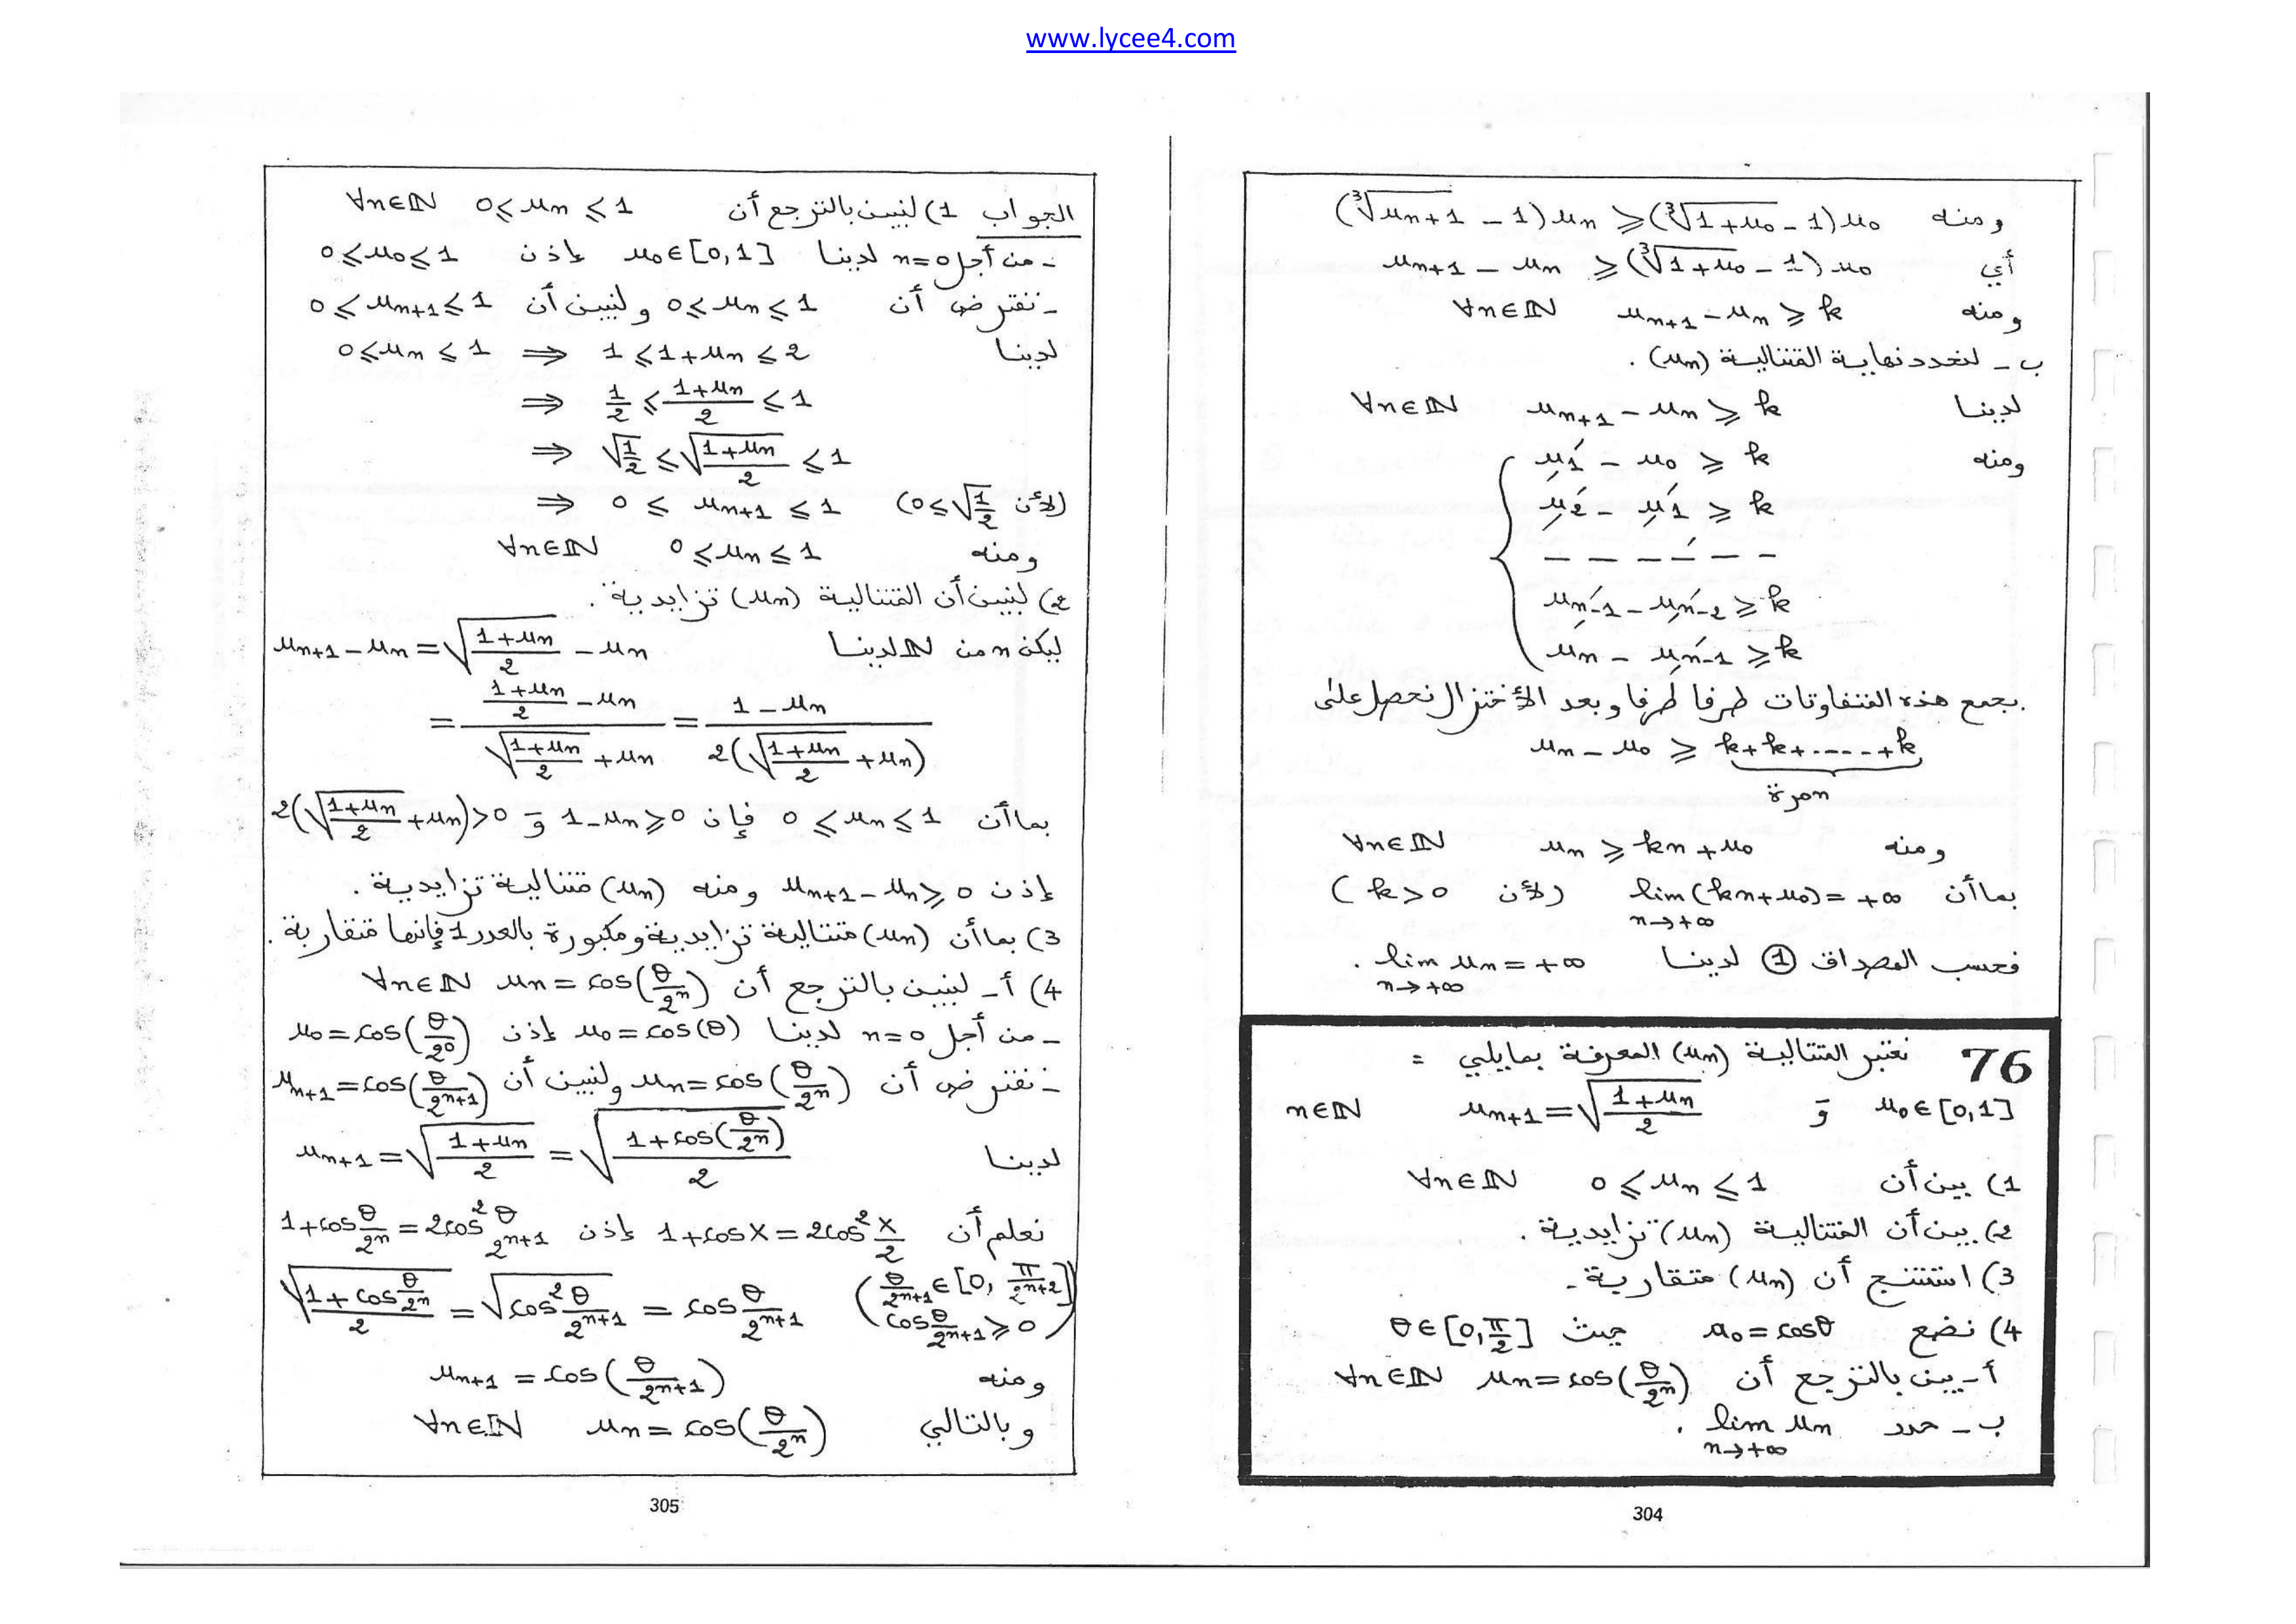 www.lycee4.com
ومنه (∛(u_n+1) - 1)u_n ⩾ (∛(1+u_0) - 1)u_0
أي u_{n+1} - u_n ⩾ (∛(1+u_0) - 1)u_0
ومنه u_{n+1} - u_n ⩾ k ∀n∈ℕ
ب - لنحدد نهاية المتتالية (u_n).
لدينا u_{n+1} - u_n ⩾ k ∀n∈ℕ
ومنه { u_1 - u_0 ⩾ k
u_2 - u_1 ⩾ k
- - - - - - -
u_{n-1} - u_{n-2} ⩾ k
u_n - u_{n-1} ⩾ k
بجمع هذه المتفاوتات طرفا طرفا وبعد الأختزال نحصل على
u_n - u_0 ⩾ k+k+.....+k
n مرة
ومنه u_n ⩾ kn + u_0 ∀n∈ℕ
بما أن lim_{n→+∞} (kn+u_0) = +∞ (لأن k>0)
فحسب المصداق ① لدينا lim_{n→+∞} u_n = +∞ .
76 نعتبر المتتالية (u_n) المعرفة بمايلي :
u_0 ∈ [0,1] و u_{n+1} = √((1+u_n)/2) n∈ℕ
1) بين أن 0 ⩽ u_n ⩽ 1 ∀n∈ℕ
2) بين أن المتتالية (u_n) تزايدية .
3) استنتج أن (u_n) متقاربة .
4) نضع u_0 = cosθ حيث θ∈[0,π/2]
أ - بين بالترجع أن u_n = cos(θ/2^n) ∀n∈ℕ
ب - حدد lim_{n→+∞} u_n .
304
الجواب 1) لنبين بالترجع أن 0 ⩽ u_n ⩽ 1 ∀n∈ℕ
- من أجل n=0 لدينا u_0∈[0,1] إذن 0⩽u_0⩽1
- نفترض أن 0⩽u_n⩽1 ولنبين أن 0⩽u_{n+1}⩽1
لدينا 0⩽u_n⩽1 ⟹ 1⩽1+u_n⩽2
⟹ 1/2 ⩽ (1+u_n)/2 ⩽ 1
⟹ √(1/2) ⩽ √((1+u_n)/2) ⩽ 1
⟹ 0 ⩽ u_{n+1} ⩽ 1 (لأن 0⩽√(1/2))
ومنه 0⩽u_n⩽1 ∀n∈ℕ
2) لنبين أن المتتالية (u_n) تزايدية .
ليكن n من ℕ لدينا u_{n+1} - u_n = √((1+u_n)/2) - u_n
= ((1+u_n)/2 - u_n)/(√((1+u_n)/2) + u_n) = (1-u_n)/(2(√((1+u_n)/2) + u_n))
بما أن 0⩽u_n⩽1 فإن 1-u_n⩾0 و 2(√((1+u_n)/2)+u_n)>0
إذن u_{n+1} - u_n ⩾ 0 ومنه (u_n) متتالية تزايدية .
3) بما أن (u_n) متتالية تزايدية ومكبورة بالعدد 1 فإنها متقاربة .
4) أ - لنبين بالترجع أن u_n = cos(θ/2^n) ∀n∈ℕ
- من أجل n=0 لدينا u_0=cos(θ) إذن u_0=cos(θ/2^0)
- نفترض أن u_n=cos(θ/2^n) ولنبين أن u_{n+1}=cos(θ/2^{n+1})
لدينا u_{n+1} = √((1+u_n)/2) = √((1+cos(θ/2^n))/2)
نعلم أن 1+cosX=2cos²X/2 إذن 1+cosθ/2^n = 2cos²θ/2^{n+1}
√((1+cosθ/2^n)/2) = √(cos²θ/2^{n+1}) = cosθ/2^{n+1} (θ/2^{n+1}∈[0, π/2^{n+2}] cosθ/2^{n+1}⩾0)
ومنه u_{n+1} = cos(θ/2^{n+1})
وبالتالي u_n = cos(θ/2^n) ∀n∈ℕ
305